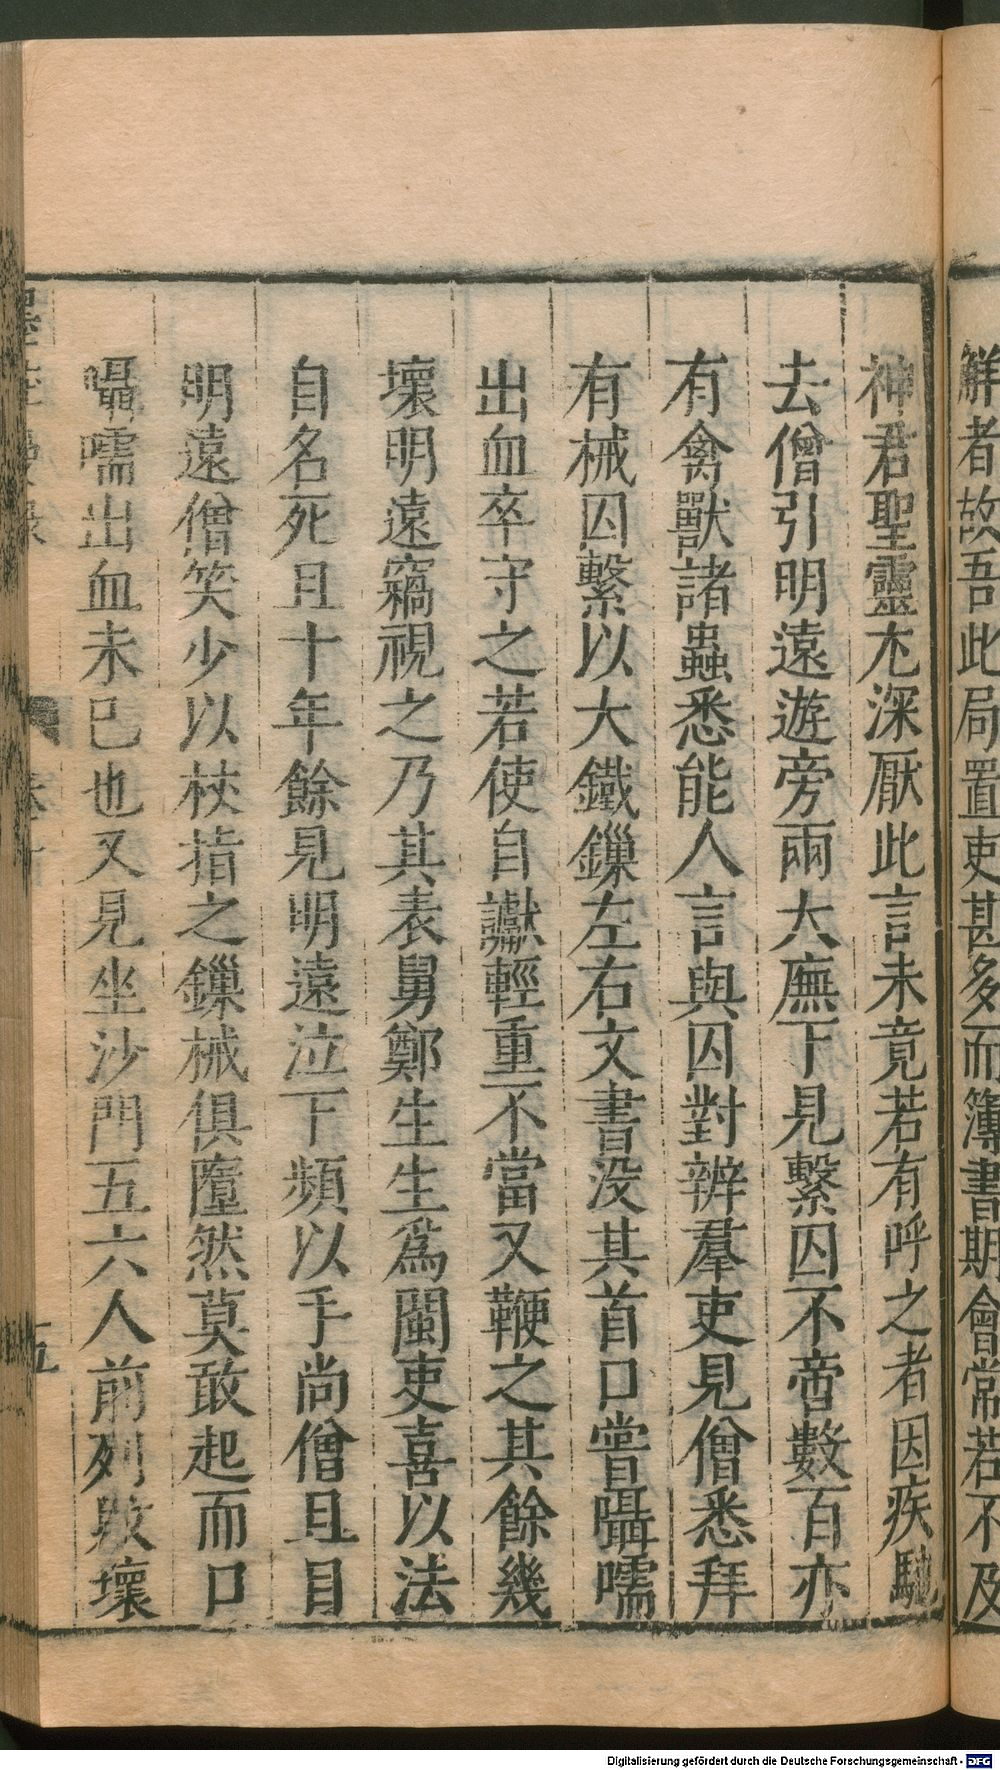 鮮者故吾此局置吏甚多而簿書期會常若不及
神君聖靈尤深厭此言未竟若有呼之者因疾馳
去僧引明遠遊旁兩大廡下見繫囚不啻數百亦
有禽獸諸蟲悉能人言與囚對辨羣吏見僧悉拜
有械囚繫以大鐵鏁左右文書没其首口嘗囁嚅
出血卒守之若使自讞輕重不當又鞭之其餘幾
壞明遠竊視之乃其表舅鄭生生爲閩吏喜以法
自名死且十年餘見明遠泣下頻以手尚僧且目
明遠僧笑少以杖指之鏁械俱墮然莫敢起而口
囁嚅出血未已也又見坐沙門五六人前列敗壞
卷十
五
Digitalisierung gefördert durch die Deutsche Forschungsgemeinschaft - DFG